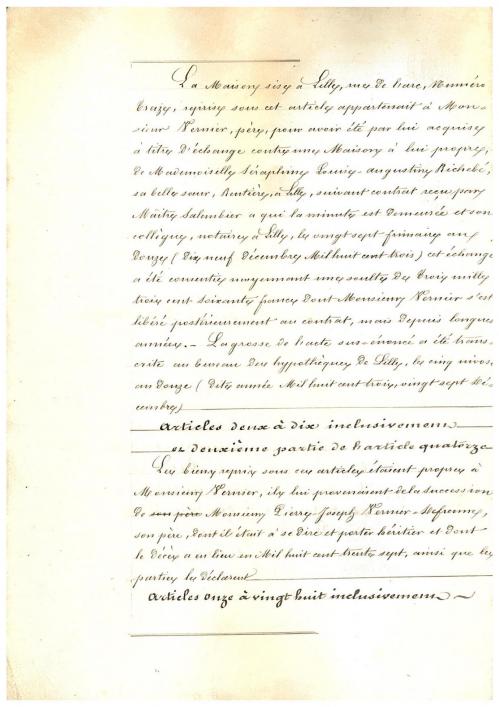 La Maison sise à Lille, rue de Larc, Numéro
treize, reprise sous cet article appartenait à Mon-
sieur Vernier, père, pour avoir été par lui acquise
à titre d'échange contre une Maison à lui propre,
de Mademoiselle Séraphine Louise-augustine Richebé,
sa belle sœur, Rentière, à Lille, suivant contrat reçu par
Maître Salembier a qui la minute est demeurée et son
collègue, notaires à Lille, le vingt sept frimaire an
Douze (Dix neuf Décembre Mil huit cent trois) cet échange
a été consentie moyennant une soulte De Trois mille
trois cent soixante francs dont Monsieur Vernier s'est
libéré postérieurement au contrat, mais depuis longues
années. – La grosse de l'acte sus-énoncé a été trans-
crite au bureau des hypothèques de Lille, le cinq nivose
an Douze (dite année Mil huit cent trois, vingt sept Dé-
cembre)
Articles deux à dix inclusivement
et deuxième partie de l'article quatorze
Les biens repris sous ces articles étaient propres à
Monsieur Vernier, ils lui provenaient de la succession
de son père Monsieur Pierre-Joseph Vernier-Defrenne,
son père, dont il était à se dire et porter héritier et dont
le décès a eu lieu en Mil huit cent trente sept, ainsi que les
parties le déclarent
Articles onze à vingt huit inclusivement